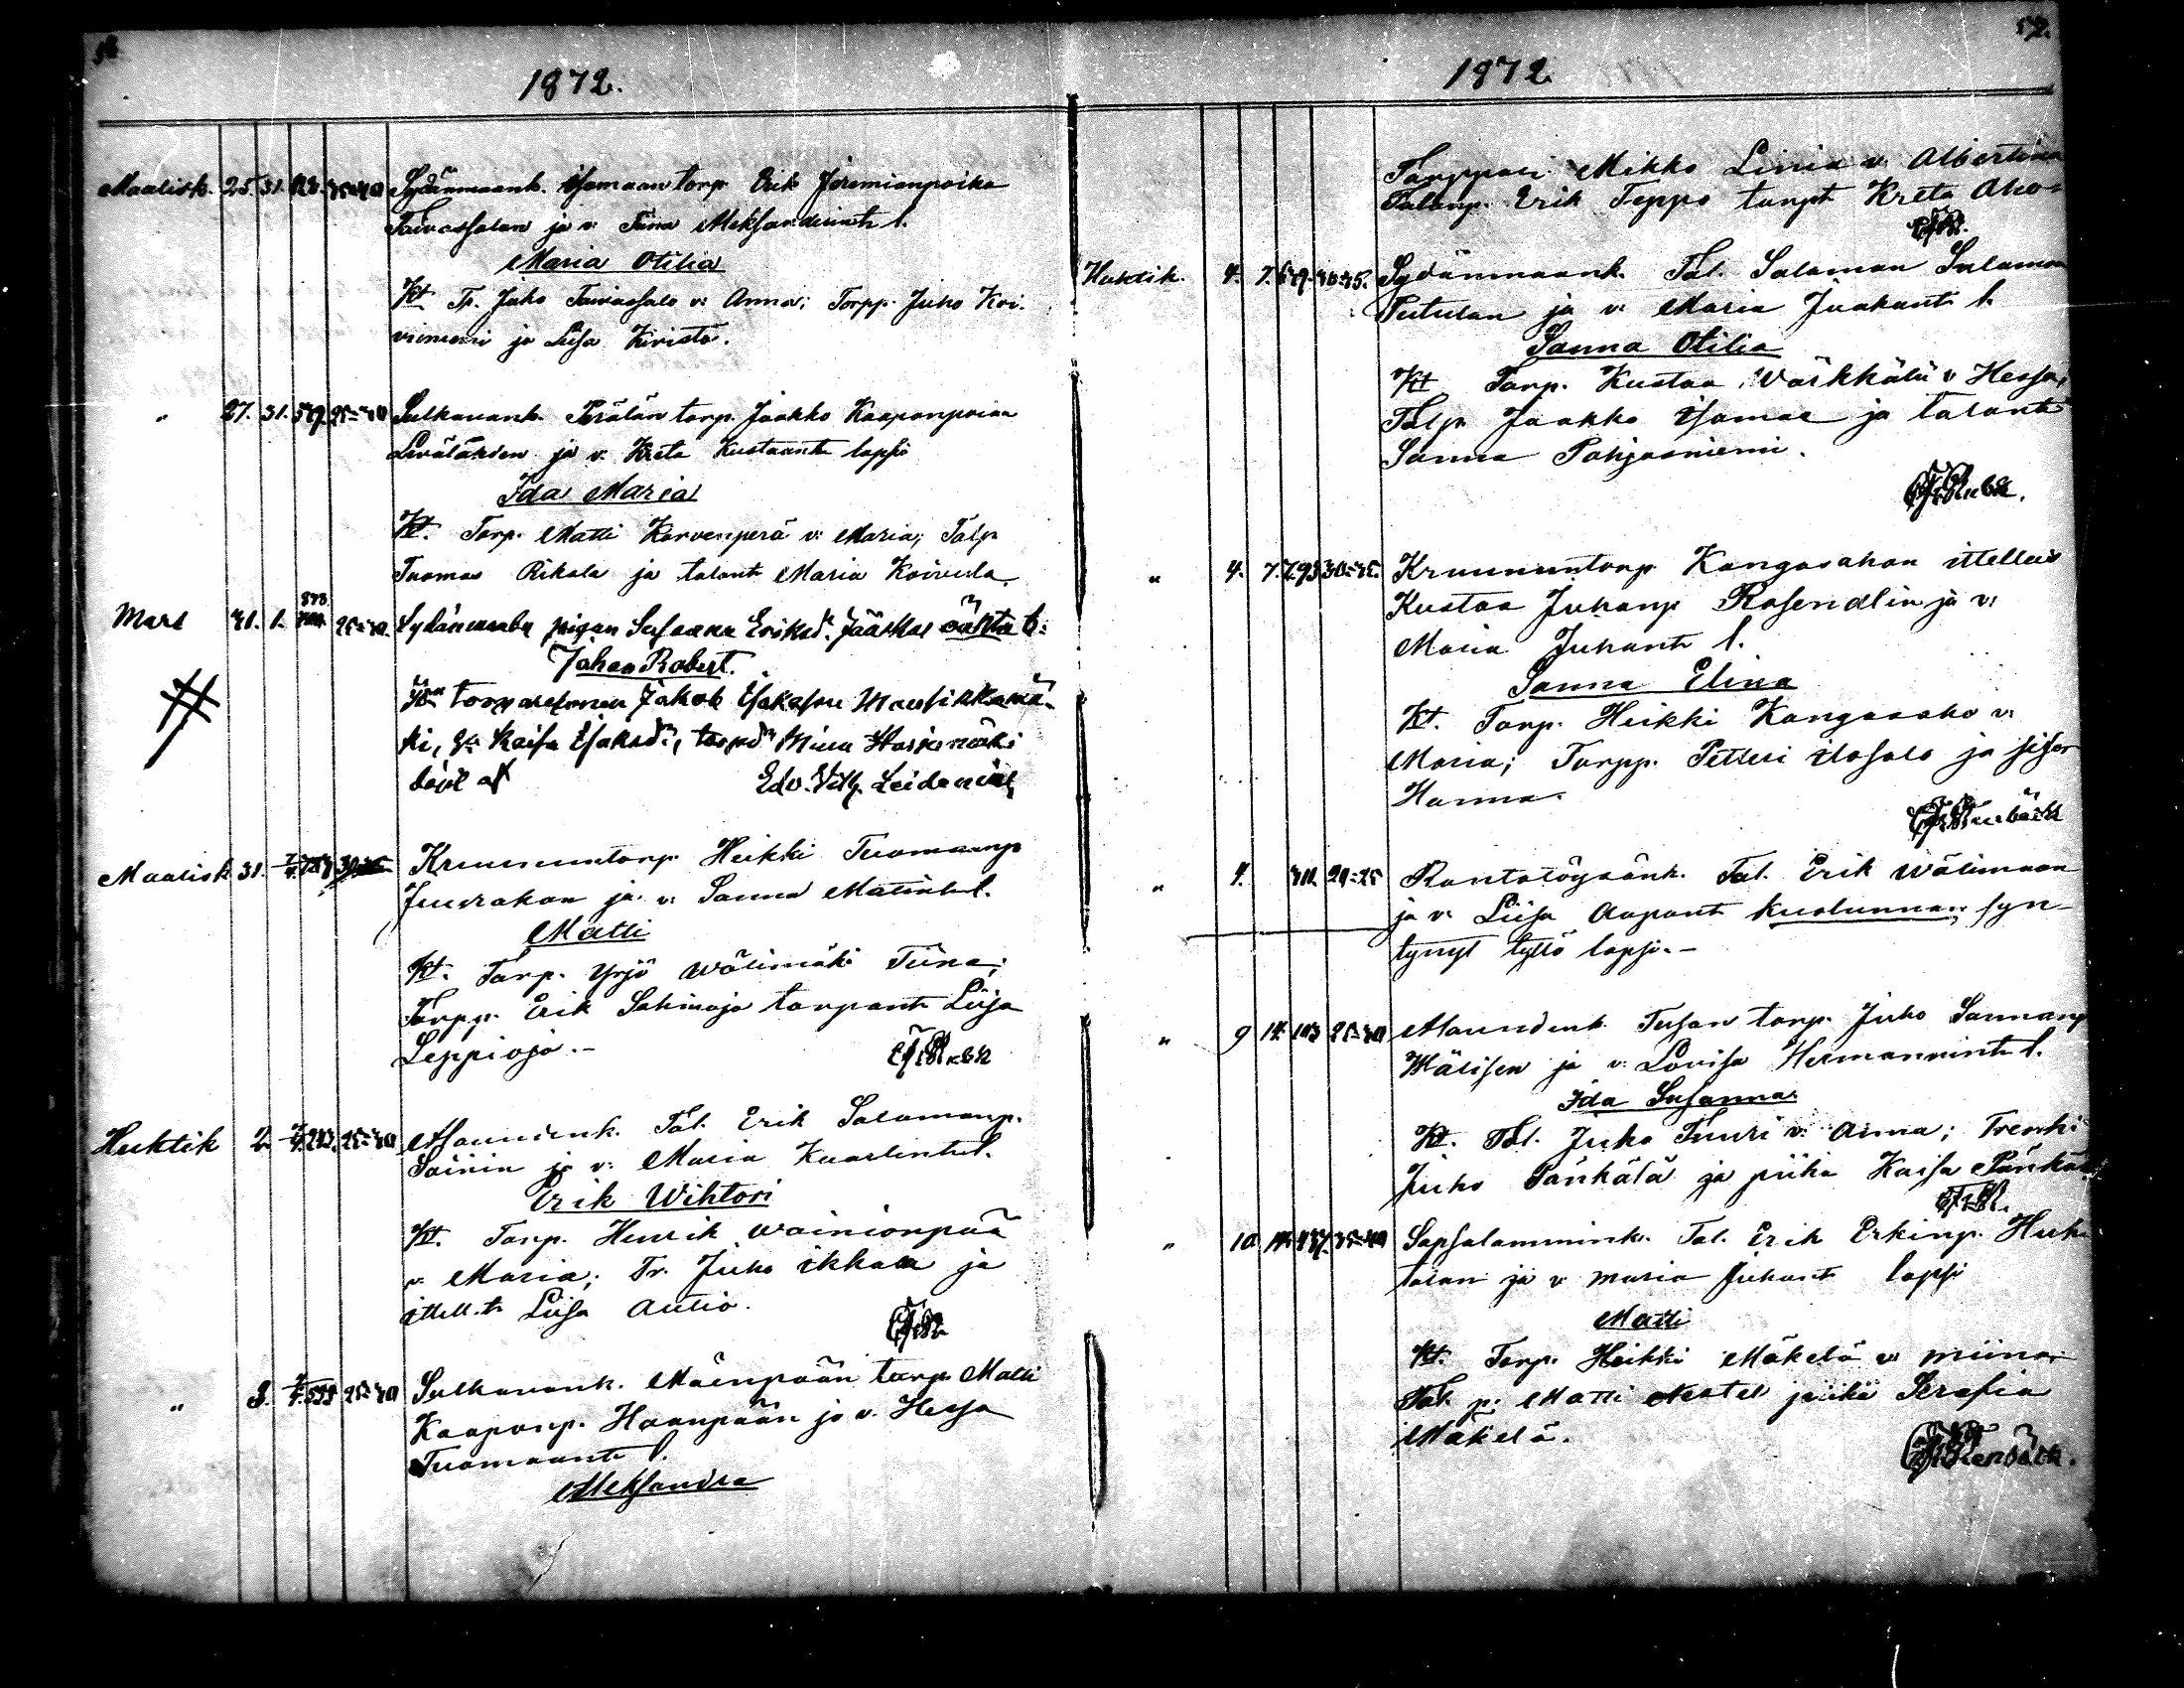 1872.
Maalisk. 25. 31. Sydänmaank. Isomaan torp. Erik Jeremianpoika
Taivassalon ja v: Tiina Aleksanderint. l.
Maria Otilia
Kt. Tp. Juho Taivassalo v: Anna; Torpp. Juho Koi-
viniemi ja Liisa Kivistö.
" 27. 31. 25=30 Sulkavank. Perälän torp. Jaakko Kaaponpoian
Levälahden ja v: Kreta Kustaant. lapsi
Ida Maria
Kt. Torp. Matti Korvenperä v: Maria; Talp.
Tuomas Rikala ja talont. Maria Koivula.
Mars 31. 1. 25=30. Sydänmaaby pigan Susanna Eriksd:r Jääskes oäkta b:
Johan Robert.
torparesonen Jakob Esaksson Mansikkamä-
ki, Kaisa Esaksd:r, torpd:r Miina Harjumäki
döpt af Edv. Vilh. Leidenius
Maalisk 31. Kruununtorp. Heikki Tuomaanp.
Juurakon ja v: Sanna Matint. l.
Matti
Kt. Torp. Yrjö Wälimäki Tiina;
Torpp. Erik Sahinoja torpant. Liisa
Leppioja.-
Huhtik 2. 25=30 Alaundenk. Tal. Erik Salomonp.
Soinin ja v: Maria Kaarlent. l.
Erik Wihtori
Kt. Torp. Henrik Wainionpää
v: Maria; Tr. Juho Ikkala ja
ittell.t. Liisa Autio.
" 3. 25=30 Sulkavank. Mäenpään torp. Matti
Kaaponp. Haanpään ja v: Hessa
Tuomaant. l.
Aleksandra
52.
1872
Torppari Mikko Linia v: Albertina
Talonp. Erik Teppo torpt. Kreta Aho
Huhtik. 4. 7. Sydänmaank. Tal. Salomon Salomon
Putulan ja v: Maria Juakunt. l.
Sanna Otilia
Kt. Torp. Kustaa Wärkkälä v: Hessa;
Talp. Jaakko Isomaa ja talont.
Sanna Pohjasniemi.
" 4. 7. 793 30=35. Kruununtorp. Kangasahon ittelleis
Kustaa Juhanp. Rosendlin ja v:
Maria Juhant. l.
Sanna Elina
Kt. Torp. Heikki Kangasaho v:
Maria; Torpp. Petteri Ilosalo ja sisar
Hanna.
" 4. 311. 20=25 Rantatöysänk. Tal. Erik Wälimaan
ja v: Liisa Aapont. kuolunna syn-
tynyt tyttö lapsi.-
" 9 14. 103 25=30 Alaundenk. Tusan torp. Juho Sannanp.
Wälisen ja v: Lovisa Hermannint. l.
Ida Susanna
Kt. Tal. Juho Tuuri v: Anna; Trenki
Juho Pänkälä ja piika Kaisa Pänkälä
" 10. 14. 35=40 Sapsalammink. Tal. Erik Erkinp. Huh-
talan ja v: Maria Juhant. lapsi
Matti
Kt. Torp. Heikki Mäkelä v: Miina
Tal. p: Matti piika Serafia
Mäkelä.